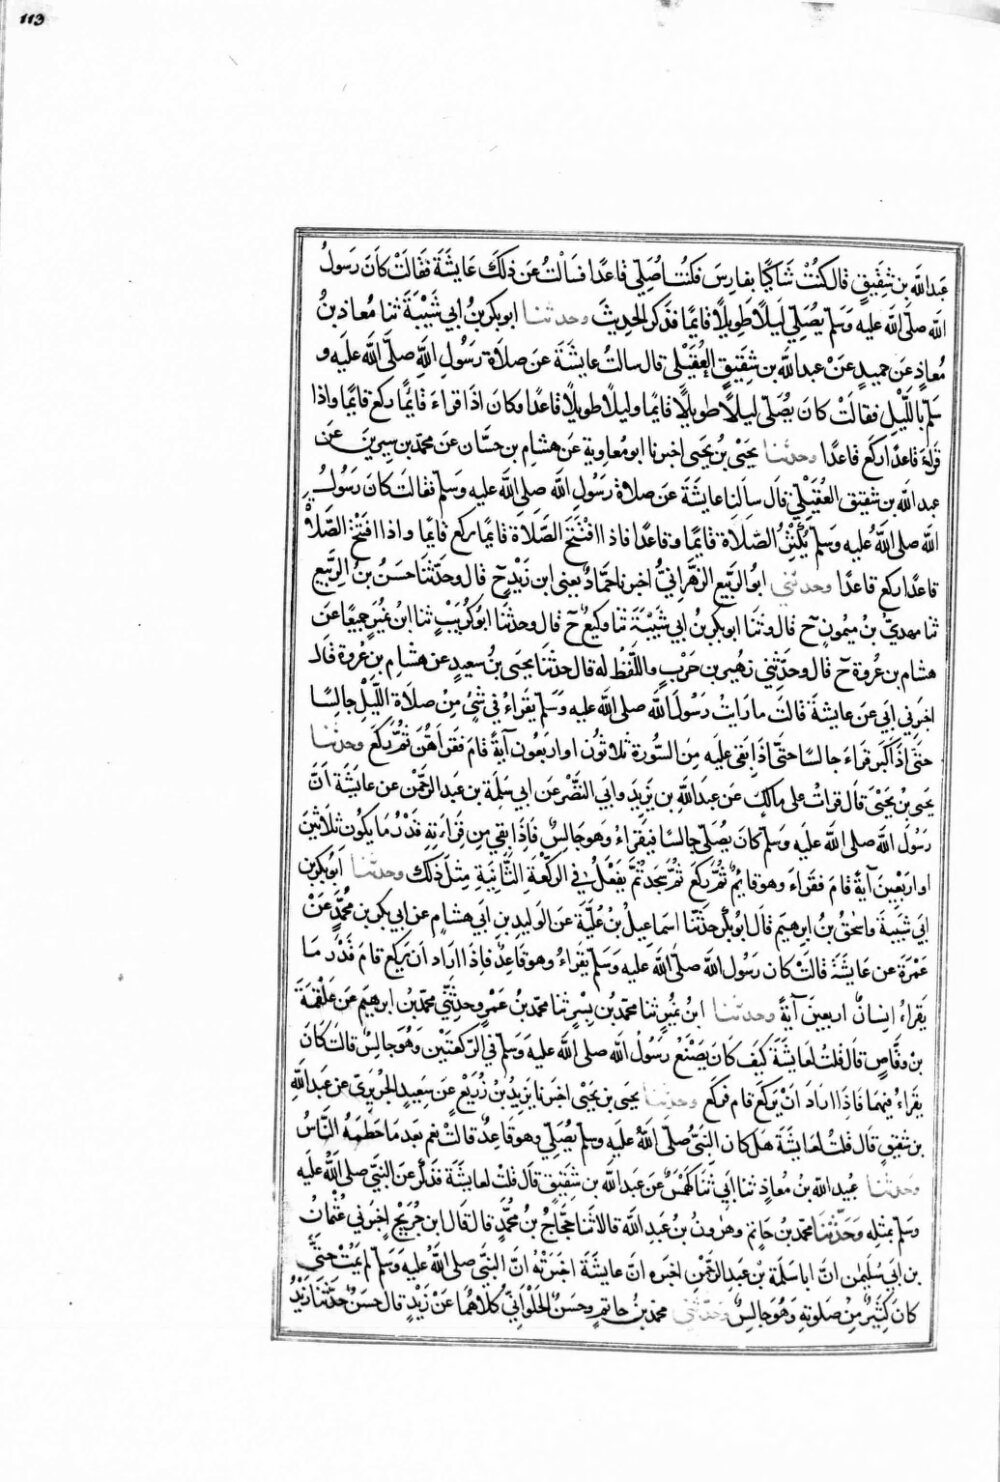 113
عبد الله بن شقيق قال كنت شاكيًا بفارس فكنت اصلي قاعدا فسألت عن ذلك عايشة فقالت كان رسول
الله صلى الله عليه وسلم يصلي ليلا طويلا قايما فذكر الحديث وحدثنا ابو بكر بن ابي شيبة ثنا معاذ بن
معاذ عن حميد عن عبد الله بن شقيق العقيلي قال سالت عايشة عن صلاة رسول الله صلى الله عليه و
سلم بالليل فقالت كان يصلي ليلا طويلا قايما وليلا طويلا قاعدا وكان اذا قراء قايما ركع قايما واذا
قراء قاعدا ركع قاعدا وحدثنا يحيى بن يحيى اخبرنا ابو معاوية عن هشام بن حسان عن محمد بن سيرين عن
عبد الله بن شقيق العقيلي قال سالنا عايشة عن صلاة رسول الله صلى الله عليه وسلم فقالت كان رسول
الله صلى الله عليه وسلم يكثر الصلاة قايما وقاعدا فاذا افتتح الصلاة قايما ركع قايما واذا افتتح الصلاة
قاعدا ركع قاعدا وحدثني ابو الربيع الزهراني اخبرنا حماد يعني ابن زيد ح قال وحدثنا حسن بن الربيع
ثنا مهدي بن ميمون ح قال وثنا ابو بكر بن ابي شيبة ثنا وكيع ح قال وحدثنا ابو كريب ثنا ابن نمير جميعا عن
هشام بن عروة ح قال وحدثني زهير بن حرب واللفظ له قال حدثنا يحيى بن سعيد عن هشام بن عروة قال
اخبرني ابي عن عايشة قالت ما رايت رسول الله صلى الله عليه وسلم يقراء في شئ من صلاة الليل جالسا
حتى اذا كبر قراء جالسا حتى اذا بقي عليه من السورة ثلاثون او اربعون آية قام فقراهن ثم ركع وحدثنا
يحيى بن يحيى قال قرات على مالك عن عبد الله بن يزيد وابي النضر عن ابي سلمة بن عبد الرحمن عن عايشة ان
رسول الله صلى الله عليه وسلم كان يصلي جالسا فيقراء وهو جالس فاذا بقي من قراءته قدر ما يكون ثلاثين
او اربعين آية قام فقراء وهو قايم ثم ركع ثم سجد ثم يفعل في الركعة الثانية مثل ذلك وحدثنا ابو بكر بن
ابي شيبة واسحق بن ابرهيم قال ابو بكر حدثنا اسماعيل بن علية عن الوليد بن ابي هشام عن ابي بكر بن محمد عن
عمرة عن عايشة قالت كان رسول الله صلى الله عليه وسلم يقراء وهو قاعد فاذا اراد ان يركع قام قدر ما
يقراء انسان اربعين آية وحدثنا ابن نمير ثنا محمد بن بشر ثنا محمد بن عمرو حدثني محمد بن ابرهيم عن علقمة
بن وقاص قال قلت لعايشة كيف كان يصنع رسول الله صلى الله عليه وسلم في الركعتين وهو جالس قالت كان
يقراء فيهما فاذا اراد ان يركع قام فركع وحدثنا يحيى بن يحيى اخبرنا يزيد بن زريع عن سعيد الجريري عن عبد الله
بن شقيق قال قلت لعايشة هل كان النبي صلى الله عليه وسلم يصلي وهو قاعد قالت نعم بعد ما حطمه الناس
وحدثنا عبيد الله بن معاذ ثنا ابي ثنا كهمس عن عبد الله بن شقيق قال قلت لعايشة فذكر عن النبي صلى الله عليه
وسلم بمثله وحدثنا محمد بن حاتم وهرون بن عبد الله قالا ثنا حجاج بن محمد قال قال ابن جريج اخبرني عثمان
بن ابي سليمن ان ابا سلمة بن عبد الرحمن اخبره ان عايشة اخبرته ان النبي صلى الله عليه وسلم لم يمت حتى
كان كثير من صلوته وهو جالس وحدثني محمد بن حاتم وحسن الحلواني كلاهما عن زيد قال حسن حدثنا زيد